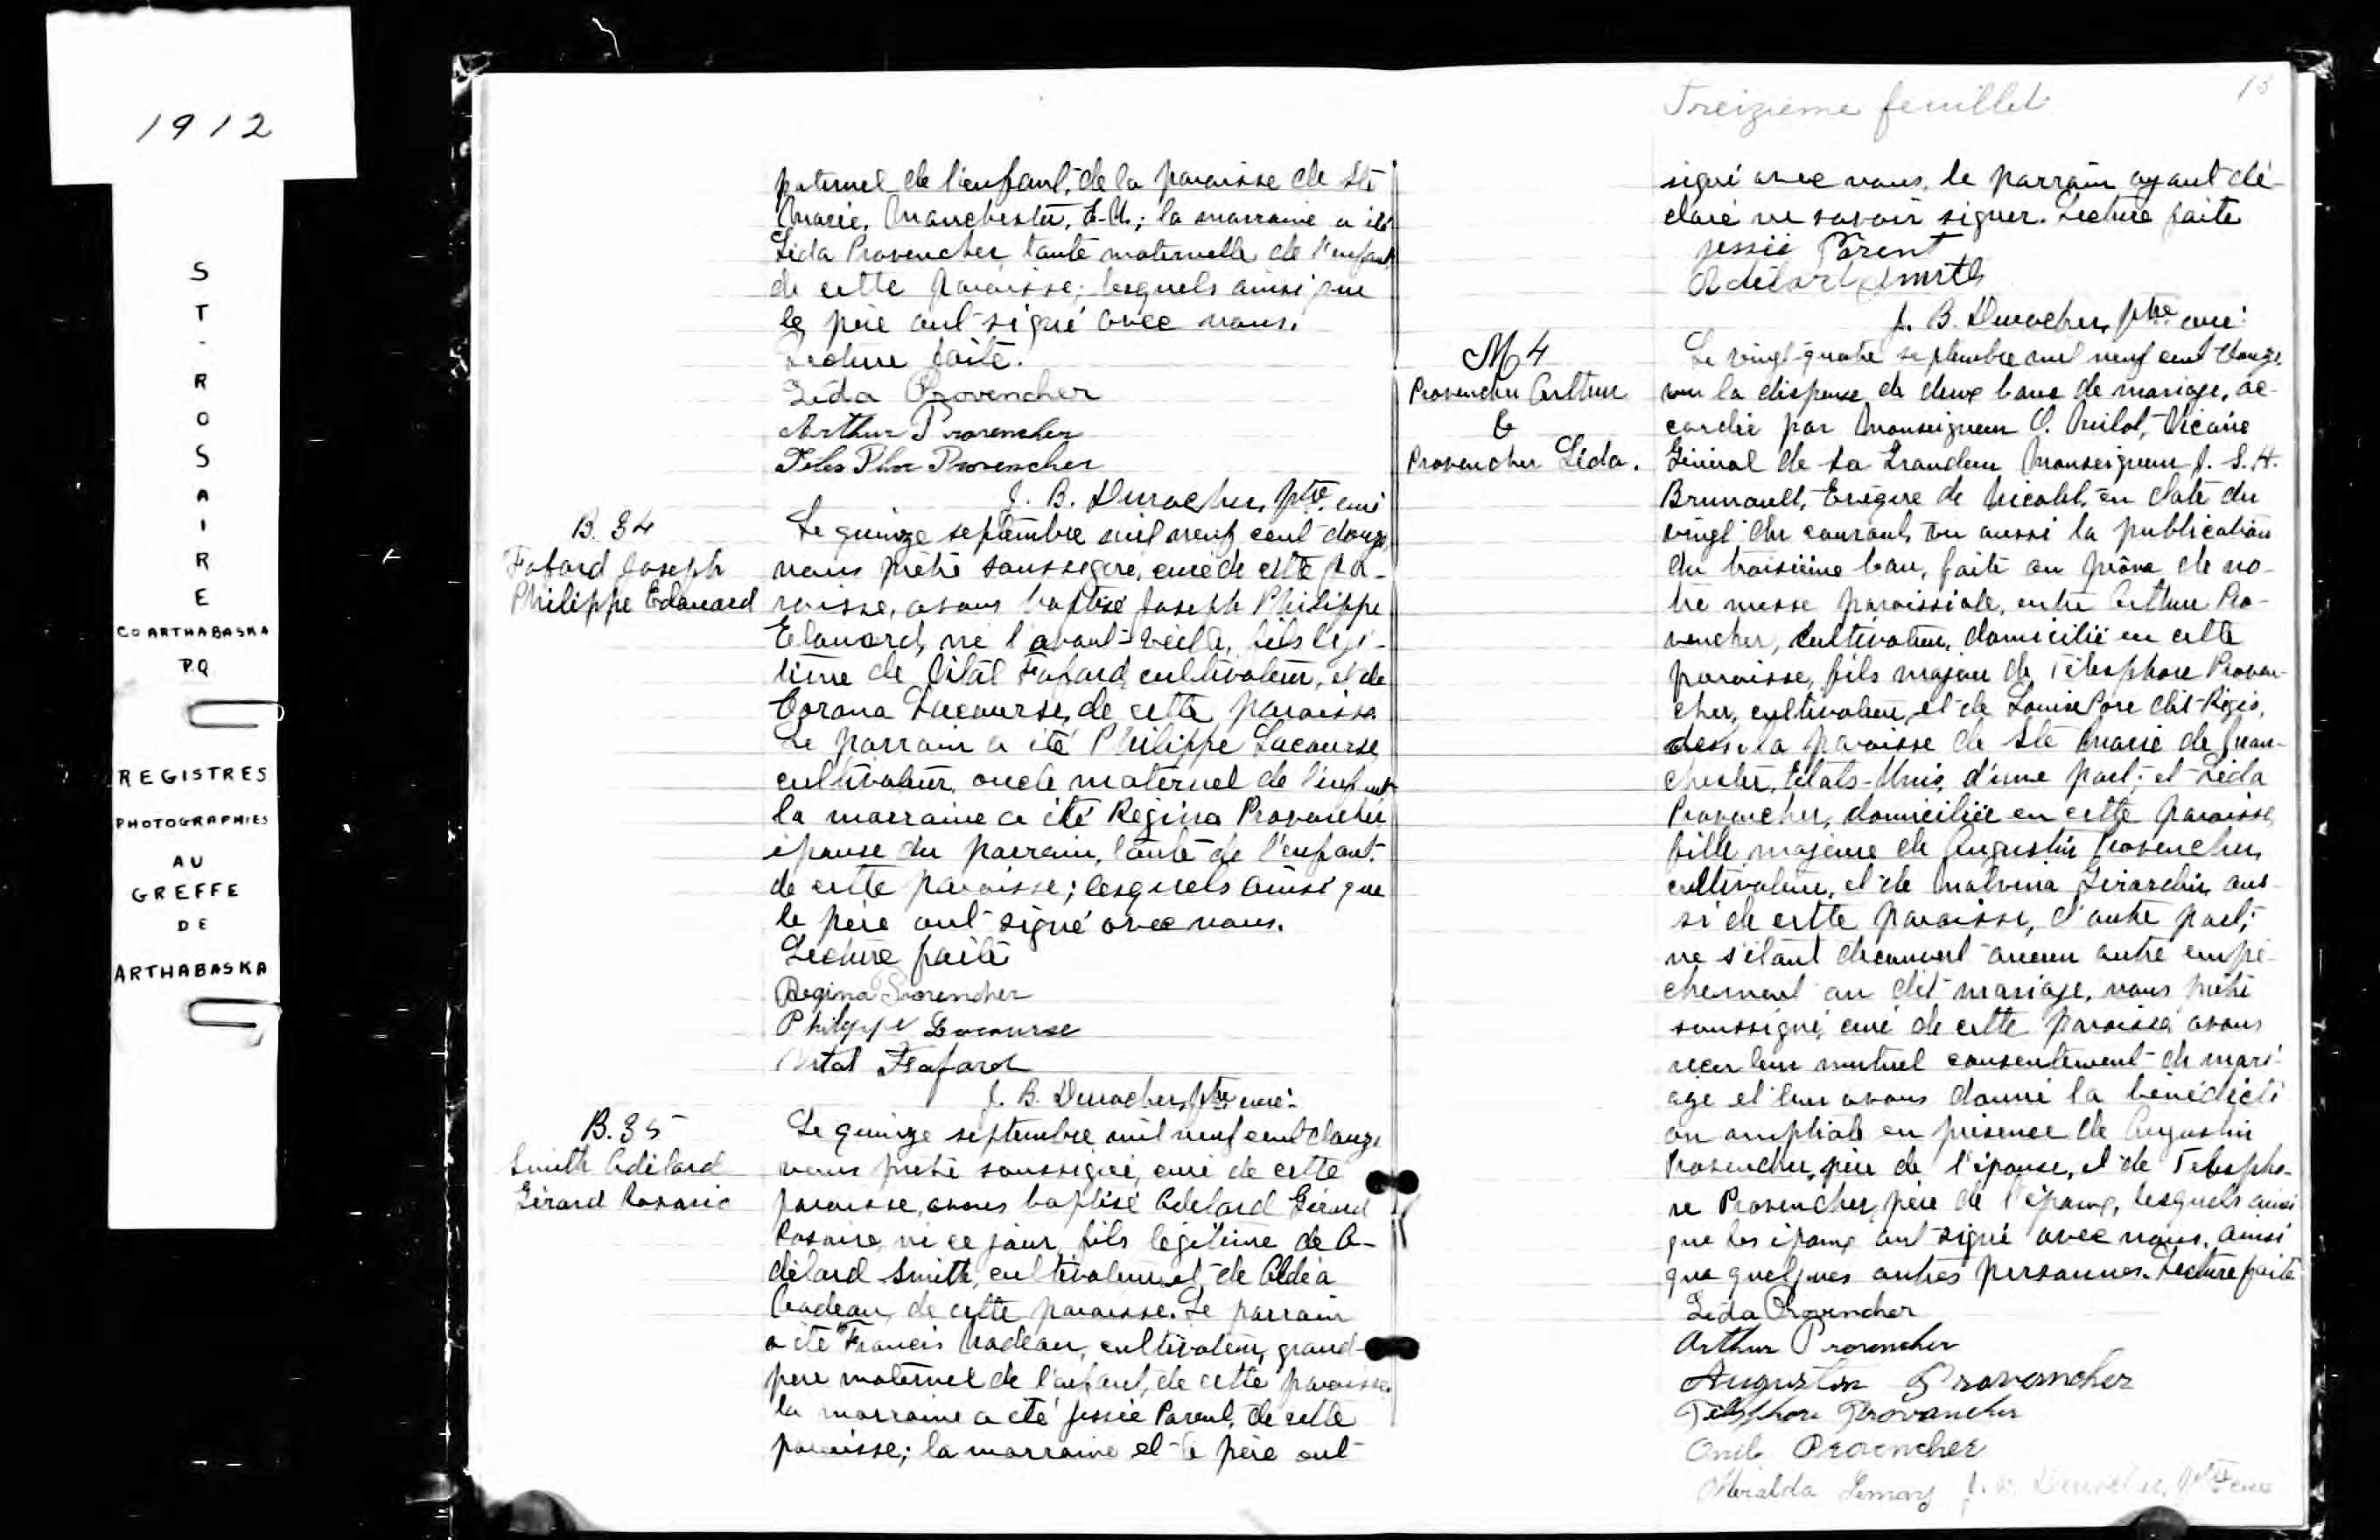 1912
ST-ROSAIRE
CO ARTHABASKA
P.Q.
REGISTRES
PHOTOGRAPHIES
AU
GREFFE
DE
ARTHABASKA
paternel de l'enfant, de la paroisse de Ste
Marie, Manchester, E-U.; la marraine a été
Léda Provencher, tante maternelle de l'enfant,
de cette paroisse; lesquels ainsi que
le père ont signé avec nous.
Lecture faite.
Léda Provencher
Arthur Provencher
Provencher
J. B. Durocher, ptre curé
B. 34
Fafard Joseph
Philippe Edouard
Le quinze septembre mil neuf cent douze
nous prêtre soussigné, curé de cette pa-
roisse, avons baptisé Joseph Philippe
Edouard, né l'avant-veille, fils légi-
time de Vital Fafard, cultivateur, et de
Corona Lacourse, de cette paroisse.
Le parrain a été Philippe Lacourse,
cultivateur, oncle maternel de l'enfant
la marraine a été Regina Provencher
épouse du parrain, tante de l'enfant,
de cette paroisse; lesquels ainsi que
le père ont signé avec nous.
Lecture faite
Regina Provencher
Philippe Lacourse
Vital Fafard
J. B. Durocher, ptre curé.
B. 35
Smith Adélard
Gérard Rosario
Le quinze septembre mil neuf cent douze
nous prêtre soussigné, curé de cette
paroisse, avons baptisé Adélard Gérard
Rosaire, né ce jour, fils légitime de A-
délard Smith, cultivateur, et de Aldéa
Nadeau, de cette paroisse. Le parrain
a été Francis Nadeau, cultivateur, grand-
père maternel de l'enfant, de cette paroisse.
la marraine a été Jessie Parent, de cette
paroisse; la marraine et le père ont
Treizième feuillet
13
signé avec nous, le parrain ayant dé-
claré ne savoir signer. Lecture faite
Jessie Parent
Adélard Smith
J. B. Durocher, ptre curé.
M 4
Provencher Arthur
&
Provencher Léda.
Le vingt-quatre septembre mil neuf cent douze,
vu la dispense de deux bans de mariage, ac-
cordée par Monseigneur O. Milot, Vicaire
Général de Sa Grandeur Monseigneur J. S. H.
Brunault, Evêque de Nicolet, en date du
vingt du courant, vu aussi la publication
du troisième ban, faite au prône de no-
tre messe paroissiale, entre Arthur Pro-
vencher, cultivateur, domicilié en cette
paroisse, fils majeur de Télesphore Proven-
cher, cultivateur, et de Louise dit Régis,
de la paroisse de Ste Marie de Man-
chester, Etats-Unis, d'une part; et Léda
Provencher, domiciliée en cette paroisse,
fille majeure de Augustin Provencher,
cultivateur, et de Malvina Girardin, aus-
si de cette paroisse, d'autre part;
ne s'étant découvert aucun autre empê-
chement au dit mariage, nous prêtre
soussigné, curé de cette paroisse avons
reçu leur mutuel consentement de mari-
age et leur avons donné la bénédicti-
on nuptiale en présence de Augustin
Provencher, père de l'épouse, et de Télespho-
re Provencher, père de l'époux, lesquels ainsi
que les époux ont signé avec nous, ainsi
que quelques autres personnes. Lecture faite
Léda Provencher
Arthur Provencher
Augustin Provencher
Télesphore Provencher
Provencher
Lemay J. B. Durocher, ptre curé